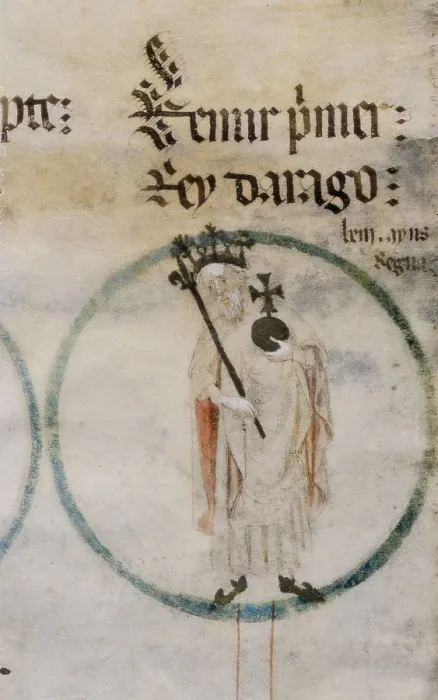 pte:
Remir pͥmer :
Rey darago :
ayns
Regna